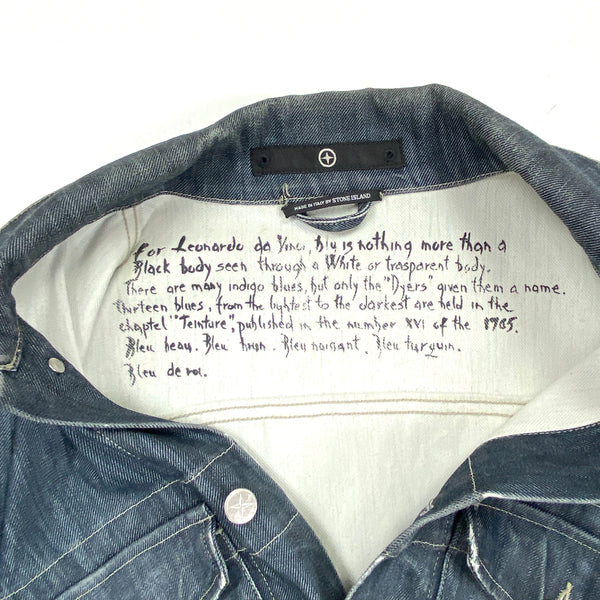 MADE IN ITALY BY STONE ISLAND
For Leonardo da Vinci, Blu is nothing more than a
Black body seen through a White or trasparent body.
There are many indigo blues, but only the "Dyers" given them a name.
Thirteen blues, from the lightest to the darkest are held in the
chaptel "Teinture", published in the number XVI of the 1785.
Bleu beau. Bleu brun. Bleu naissant. Bleu turquin.
Bleu de roi.